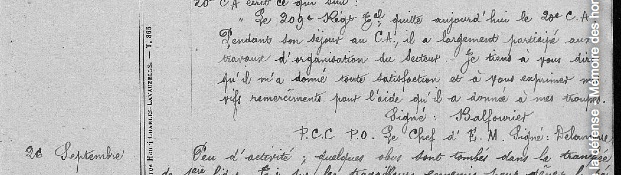 20e CA écrit ce qui suit :
" Le 209e Régt Eal quitte aujourd'hui le 20e C.A.
Pendant son séjour au CA, il a largement participé aux
travaux d'organisation du secteur. Je tiens à vous dire
qu'il m'a donné toute satisfaction et à vous exprimer m
vifs remerciements pour l'aide qu'il a donnée à mes troupes.
Signé : Balfourier
P.C.C P.O. Le Chef d'E.M. Signé : Delannoy
26 Septembre
Peu d'activité ; quelques obus sont tombés dans la tranchée
de 1ère
CHARLES-LAVAUZELLE. — T. 365
la défense - Mémoire des hom